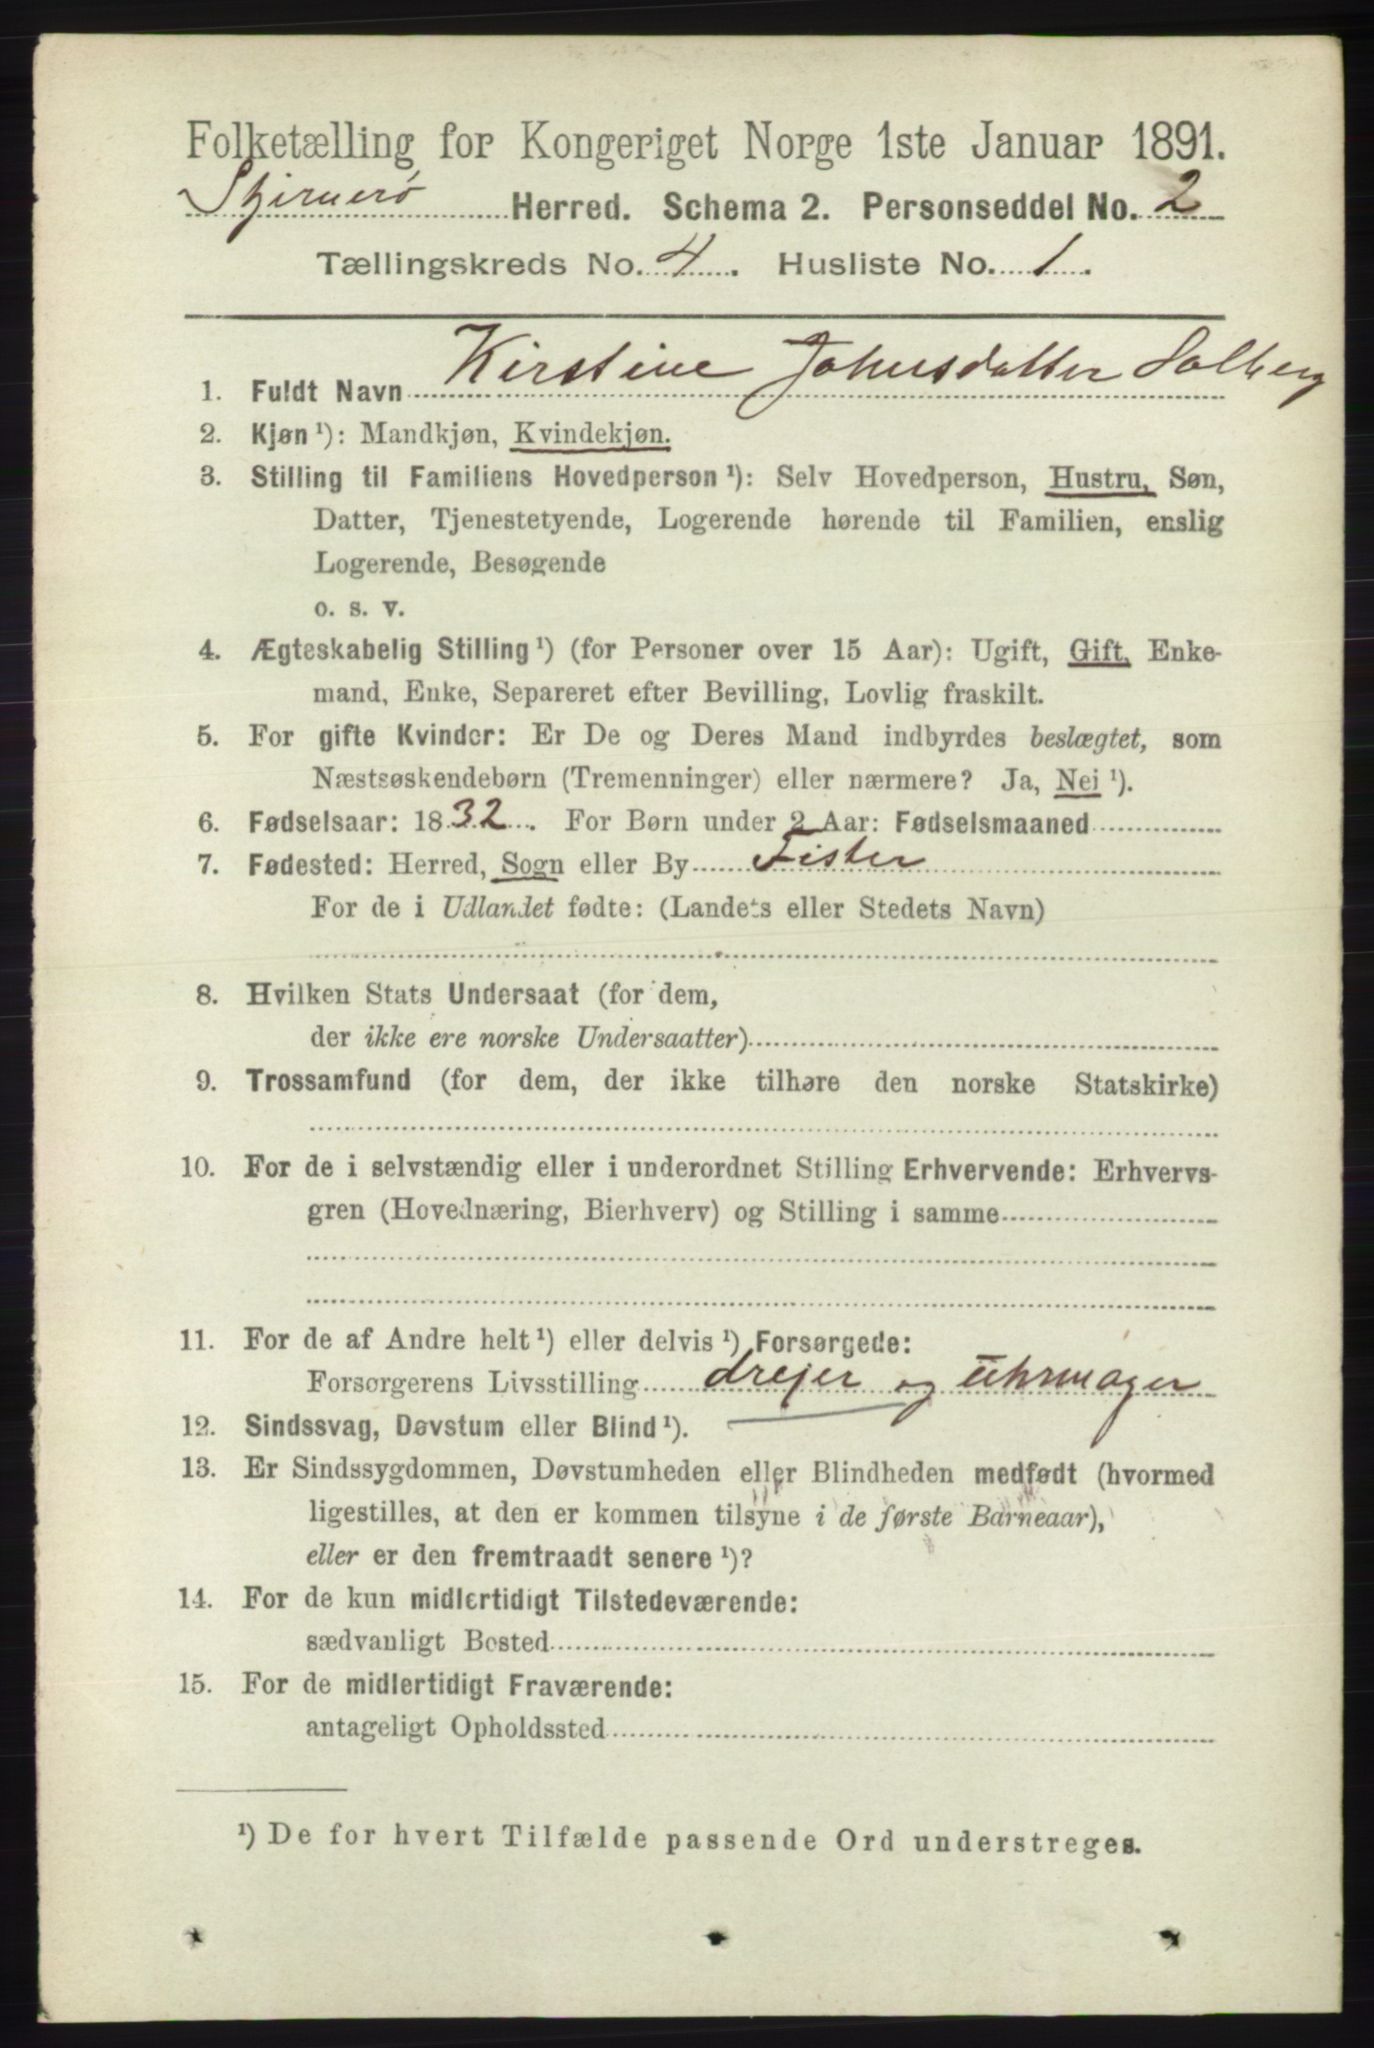 Folketælling for Kongeriget Norge 1ste Januar 1891.
Skjernerø Herred. Schema 2. Personseddel No. 2
Tællingskreds No. 4. Husliste No. 1.
1. Fuldt Navn Kirstine Johnsdatter Solberg
2. Kjøn ¹): Mandkjøn, Kvindekjøn.
3. Stilling til Familiens Hovedperson ¹): Selv Hovedperson, Hustru, Søn,
Datter, Tjenestetyende, Logerende hørende til Familien, enslig
Logerende, Besøgende
o. s. v.
4. Ægteskabelig Stilling ¹) (for Personer over 15 Aar): Ugift, Gift, Enke-
mand, Enke, Separeret efter Bevilling, Lovlig fraskilt.
5. For gifte Kvinder: Er De og Deres Mand indbyrdes beslægtet, som
Næstsøskendebørn (Tremenninger) eller nærmere? Ja, Nei ¹).
6. Fødselsaar: 1832. For Børn under 2 Aar: Fødselsmaaned
7. Fødested: Herred, Sogn eller By Fister
For de i Udlandet fødte: (Landets eller Stedets Navn)
8. Hvilken Stats Undersaat (for dem,
der ikke ere norske Undersaatter)
9. Trossamfund (for dem, der ikke tilhøre den norske Statskirke)
10. For de i selvstændig eller i underordnet Stilling Erhvervende: Erhvervs-
gren (Hovednæring, Bierhverv) og Stilling i samme
11. For de af Andre helt ¹) eller delvis ¹) Forsørgede:
Forsørgerens Livsstilling drejer og uhrmager
12. Sindssvag, Døvstum eller Blind ¹).
13. Er Sindssygdommen, Døvstumheden eller Blindheden medfødt (hvormed
ligestilles, at den er kommen tilsyne i de første Barneaar),
eller er den fremtraadt senere ¹)?
14. For de kun midlertidigt Tilstedeværende:
sædvanligt Bosted
15. For de midlertidigt Fraværende:
antageligt Opholdssted
¹) De for hvert Tilfælde passende Ord understreges.